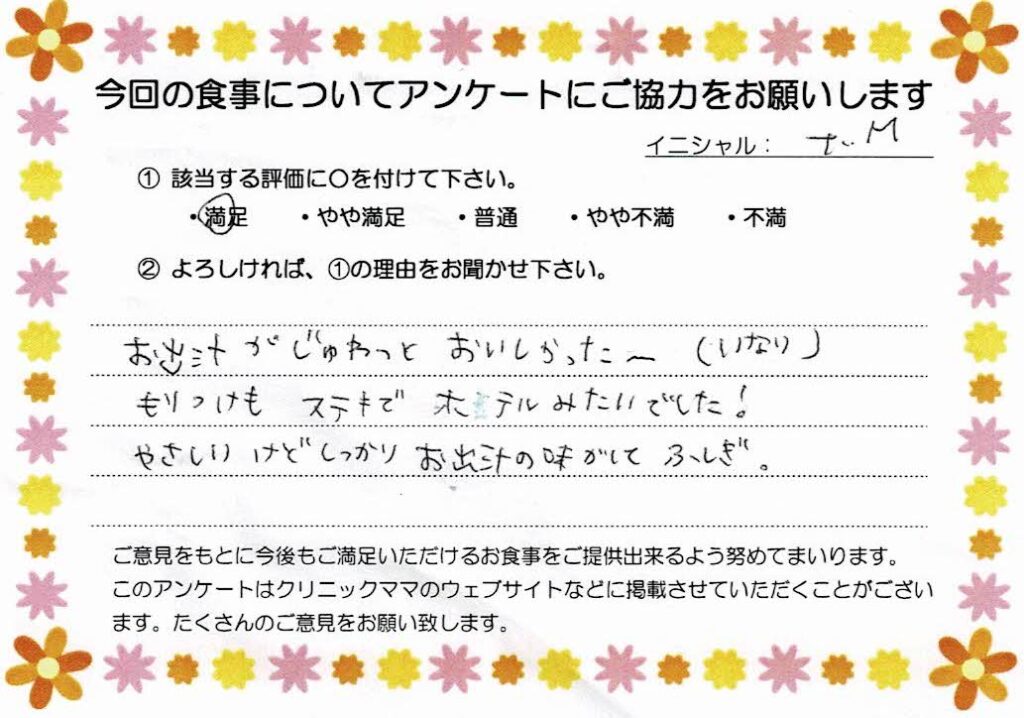 今回の食事についてアンケートにご協力をお願いします
イニシャル： M
① 該当する評価に○を付けて下さい。
・満足 ・やや満足 ・普通 ・やや不満 ・不満
② よろしければ、①の理由をお聞かせ下さい。
お出汁がじゅわっと おいしかったー (いなり)
もりつけも ステキで ホテルみたいでした!
やさしい けど しっかり お出汁の味がして ふしぎ。
ご意見をもとに今後もご満足いただけるお食事をご提供出来るよう努めてまいります。
このアンケートはクリニックママのウェブサイトなどに掲載させていただくことがござい
ます。たくさんのご意見をお願い致します。